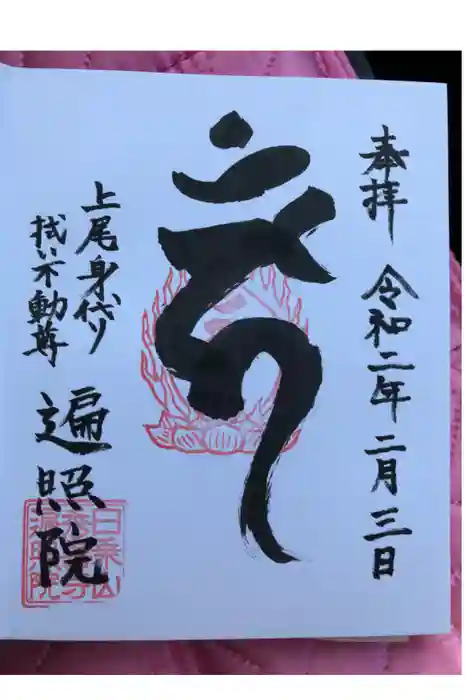 奉拝 令和二年 二月三日
𑖮𑖯𑖽
上尾身代り
拭い不動尊
遍照院
日乗山
秀善寺
遍照院